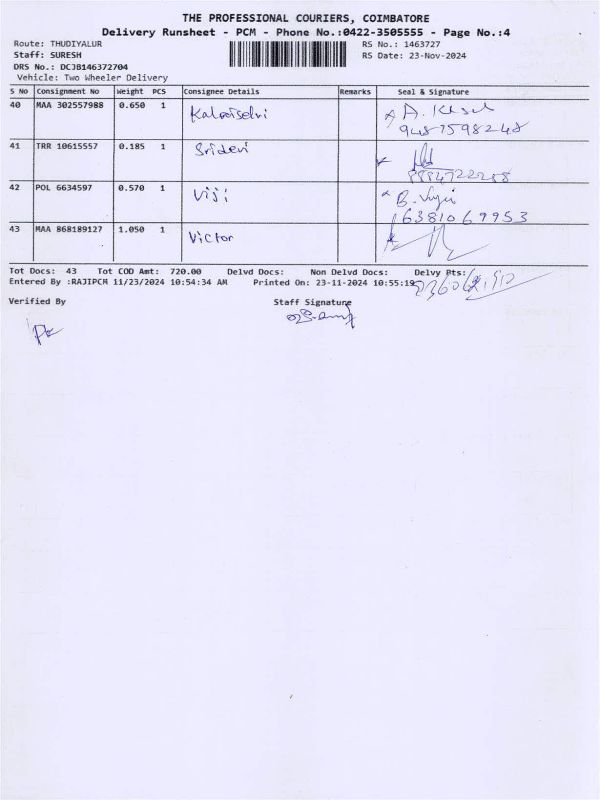 THE PROFESSIONAL COURIERS, COIMBATORE
Delivery Runsheet - PCM - Phone No.:0422-3505555 - Page No.:4
Route: THUDIYALUR RS No.: 1463727
Staff: SURESH RS Date: 23-Nov-2024
DRS No.: DCJB146372704
Vehicle: Two Wheeler Delivery
S No Consignment No Weight PCS Consignee Details Remarks Seal & Signature
40 MAA 302557988 0.650 1 Kalaiselvi
41 TRR 10615557 0.185 1 Sridevi
42 POL 6634597 0.570 1 Viji B. Viji
6381069953
43 MAA 868189127 1.050 1 Victor
Tot Docs: 43 Tot COD Amt: 720.00 Delvd Docs: Non Delvd Docs: Delvy Pts:
Entered By :RAJIPCM 11/23/2024 10:54:34 AM Printed On: 23-11-2024 10:55:19
Verified By Staff Signature